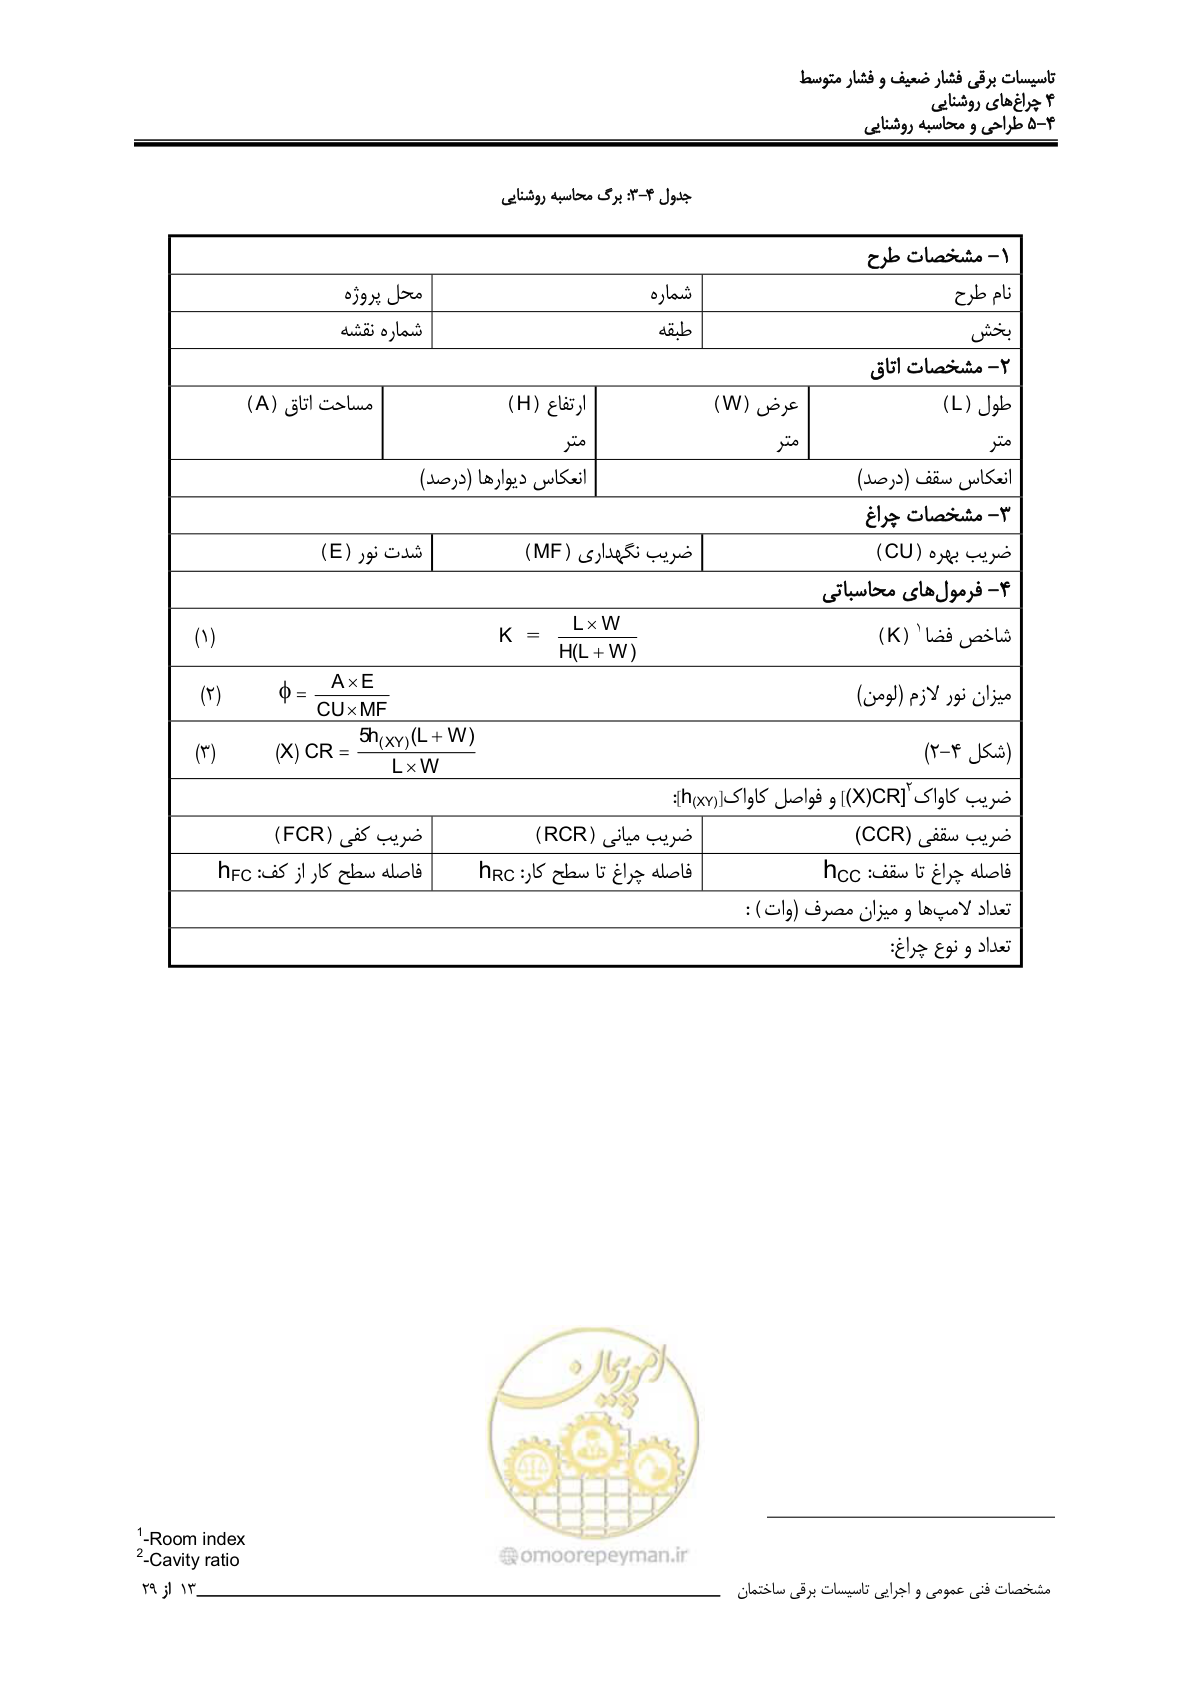 تاسیسات برقی فشار ضعیف و فشار متوسط
۴ چراغ‌های روشنایی
۴-۵ طراحی و محاسبه روشنایی
جدول ۴-۳: برگ محاسبه روشنایی
۱- مشخصات طرح
نام طرح شماره محل پروژه
بخش طبقه شماره نقشه
۲- مشخصات اتاق
طول (L) عرض (W) ارتفاع (H) مساحت اتاق (A)
متر متر متر
انعکاس سقف (درصد) انعکاس دیوارها (درصد)
۳- مشخصات چراغ
ضریب بهره (CU) ضریب نگهداری (MF) شدت نور (E)
۴- فرمول‌های محاسباتی
شاخص فضا ۱ (K) K = L × W / H(L + W) (۱)
میزان نور لازم (لومن) ϕ = A × E / CU × MF (۲)
(شکل ۴-۲) (X) CR = 5h(XY)(L + W) / L × W (۳)
ضریب کاواک۲[(X)CR] و فواصل کاواک[h(XY)]:
ضریب سقفی (CCR) ضریب میانی (RCR) ضریب کفی (FCR)
فاصله چراغ تا سقف: hCC فاصله چراغ تا سطح کار: hRC فاصله سطح کار از کف: hFC
تعداد لامپ‌ها و میزان مصرف (وات) :
تعداد و نوع چراغ:
امور پیمان
@omoorepeyman.ir
1-Room index
2-Cavity ratio
مشخصات فنی عمومی و اجرایی تاسیسات برقی ساختمان ۱۳ از ۲۹